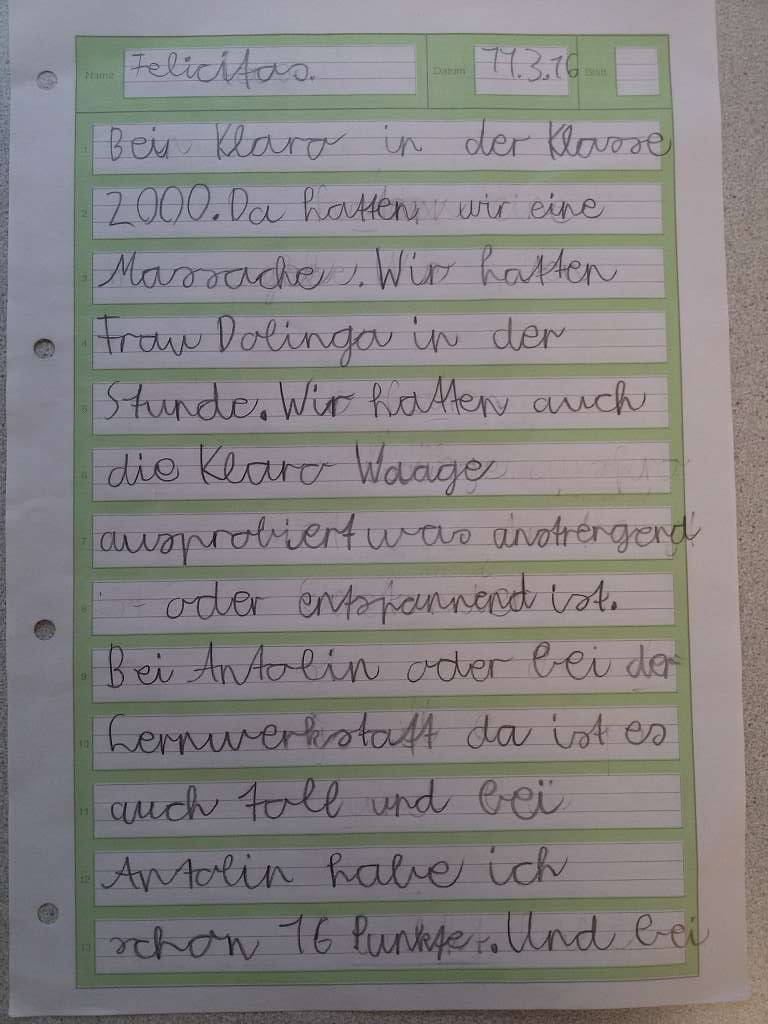 Name Felicitas. Datum 11.3.16 Blatt
1 Bein Klaro in der Klasse
2 2000. Da hatten wir eine
3 Massache. Wir hatten
4 Frau Dolinga in der
5 Stunde. Wir hatten auch
6 die Klaro Waage
7 ausprobiert was anstrengend
8 - oder entspannend ist.
9 Bei Antolin oder bei der
10 Lernwerkstatt da ist es
11 auch toll und bei
12 Antolin habe ich
13 schon 16 Punkte. Und bei